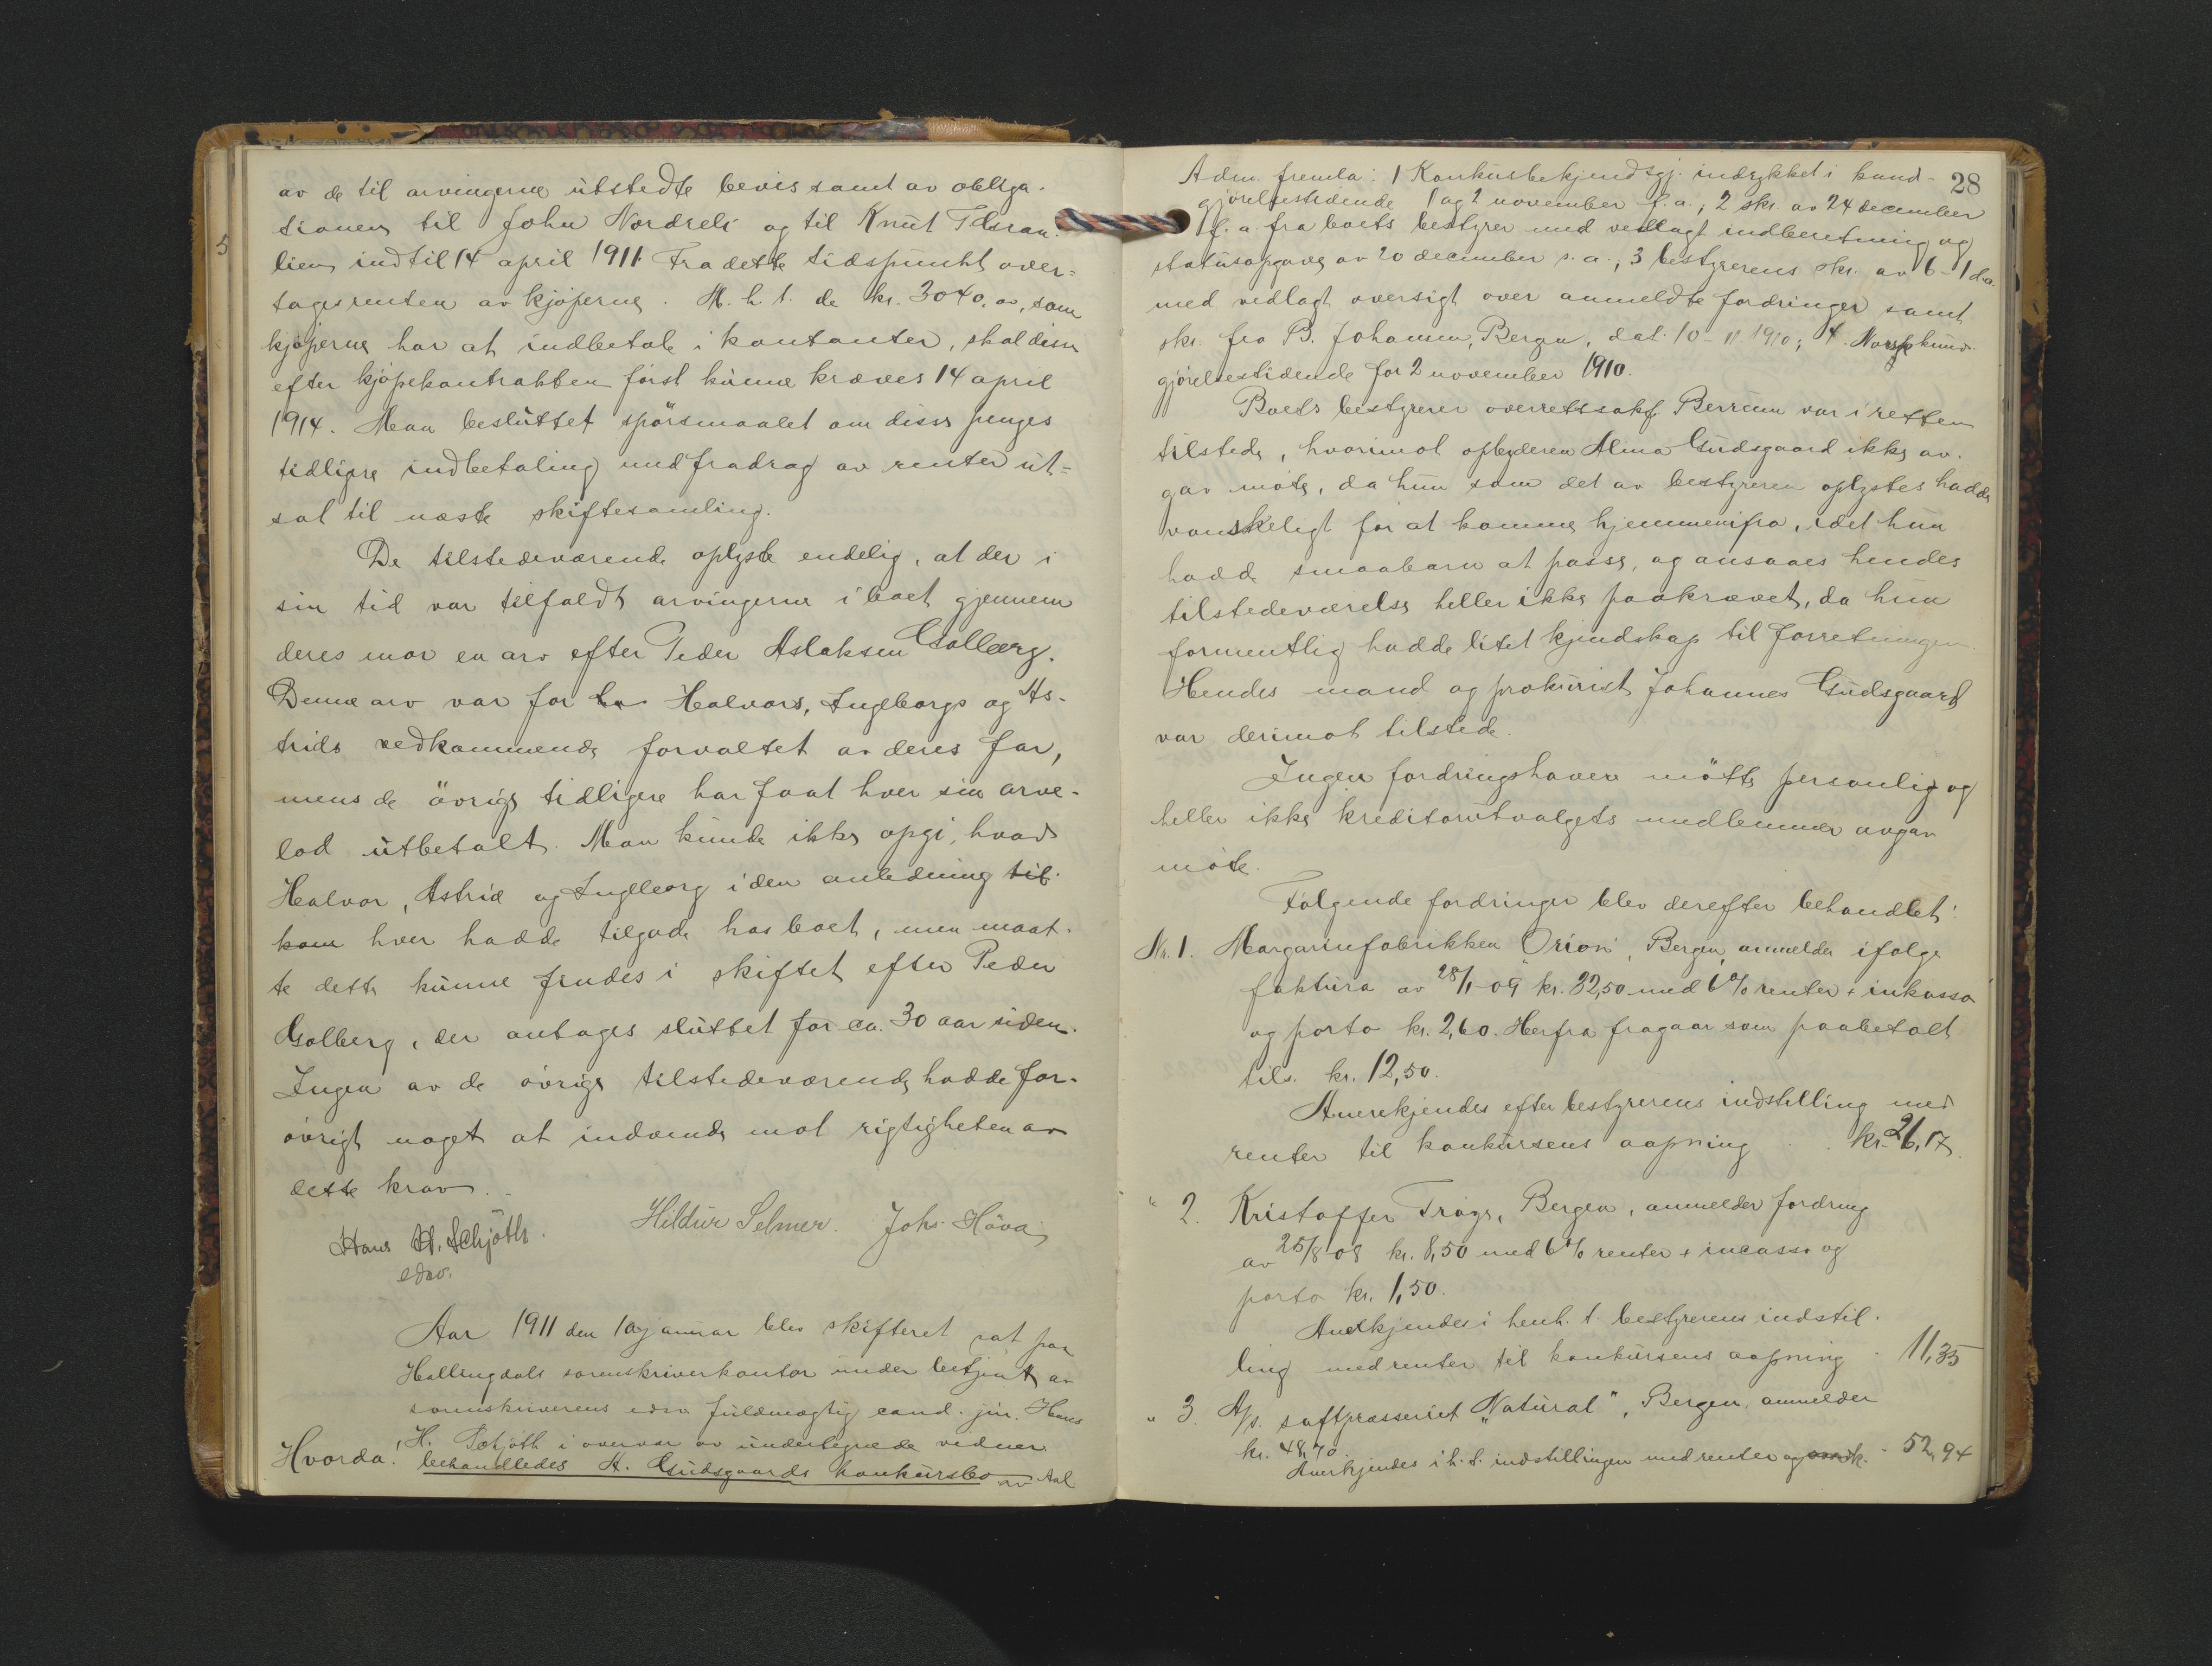 av de til arvingerne utstedte bevis samt av obliga-
tionen til John Nordreli og til Knut
lien indtil 14 april 1911. Fra dette tidspunkt over-
tages renten av kjøperne. M. h. t. de kr. 3040.00, som
kjøperne har at indbetale i kontanter, skal disse
efter kjøpekontrakten først kunne kræves 14 april
1914. Man besluttet spörsmaalet om disse penges
tidligere indbetaling med fradrag av renter ut-
sat til næste skiftesamling.
De tilstedeværende oplyste endelig, at der i
sin tid var tilfaldt arvingerne i boet gjennem
deres mor en arv efter Peder Aslaksen Golberg.
Denne arv var for Halvors, Ingeborgs og As-
trids vedkommende forvaltet av deres far,
mens de övrige tidligere har faat hver sin arve-
lod utbetalt. Man kunde ikke opgi, hvad
Halvor, Astrid og Ingeborg i den anledning til-
kom hver hadde tilgode hos boet, men maat-
te dette kunne findes i skiftet efter Peder
Golberg, der antages sluttet for ca. 30 aar siden.
Ingen av de övrige tilstedeværende hadde for-
övrigt noget at indvende mot rigtigheten av
dette krav.
Hans H. Schjöth. Hildur Selmer. Johs. Háva
edsv.
Aar 1911 den 10 januar blev skifteret sat paa
Hallingdals sorenskriverkontor under betjent av
sorenskriverens edsv. fuldmægtig cand. jur. Hans
H. Schjöth i overvær av undertegnede vidner.
Hvorda: behandledes A. Gudsgaards konkursbo av Aal
28
Adm. fremla: 1 Konkursbekjendtgj. indrykket i kund-
gjörelsestidende 1 og 2 november f.a., 2 skr. av 24 december
f.a. fra boets bestyrer med vedlagt indberetning og
statusopgave av 20 december s.a., 3 bestyrerens skr. av 6-1 d.a.
med vedlagt oversigt over anmeldte fordringer samt
skr. fra B. Johannsen, Bergen, dat. 10-11 1910; 4. Norsk kund-
gjörelsestidende for 2 november 1910.
Boets bestyrer overretssakf. Berrum var i retten
tilstede, hvorimot opbyderen Alma Gudsgaard ikke av-
gav möte, da hun som det av bestyreren oplystes hadde
vanskeligt for at komme hjemmenifra, idet hun
hadde smaabarn at passe, og ansaaes hendes
tilstedeværelse heller ikke paakrævet, da hun
formentlig hadde litet kjendskap til forretningen.
Hendes mand og prokurist Johannes Gudsgaard
var derimot tilstede.
Ingen fordringshavere mötte personlig og
heller ikke kreditorutvalgets medlemmer avgav
möte.
Følgende fordringer blev derefter behandlet:
Nr. 1. Margarinfabrikken "Orion", Bergen, anmelder ifølge
faktura av 28/1-09 kr. 32,50 med 6% renter + inkasso
og porto kr. 2,60. Herfra fragaar som paabetalt
tils. kr. 12,50.
Anerkjendes efter bestyrerens indstilling med
renter til konkursens aapning kr. 26,17.
" 2. Kristoffer Troye, Bergen, anmelder fordring
av 25/8-08 kr. 8,50 med 6% renter + incasso og
porto kr. 1,50.
Anerkjendes i henh. t. bestyrerens indstil-
ling med renter til konkursens aapning - 11,35
" 3. A/s. saftpresseriet "Natural", Bergen, anmelder
kr. 48,70.
Anerkjendes i h. t. indstillingen med renter og omk. - 52,94